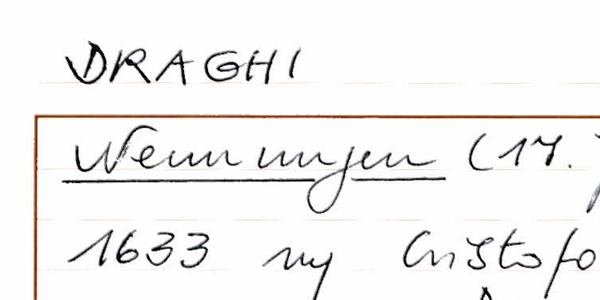 DRAGHI
Nennungen (17.
1633 Cristofo